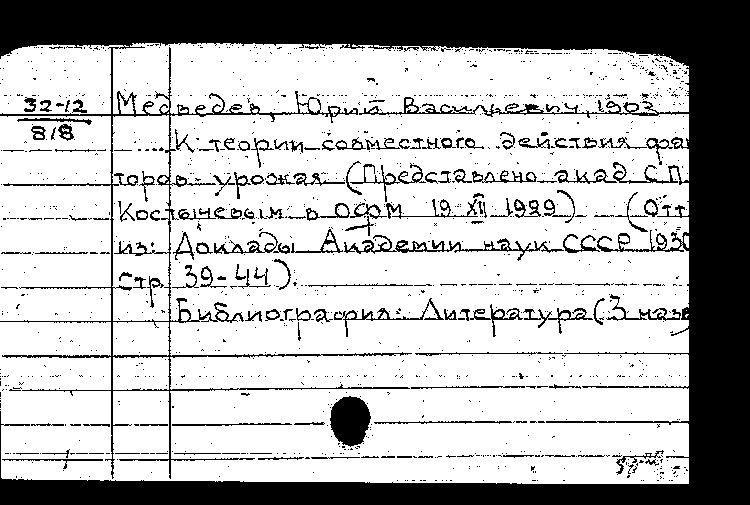 32-12
818
Медведев, Юрий Васильевич, 1903
К теории совместного действия фак
торов урожая (Представлено акад С.П.
Костычевым в ОФМ 19 XII 1929) (Отт
из: Доклады Академии наук СССР 1930
стр 39-44).
Библиография: Литература (3 назв